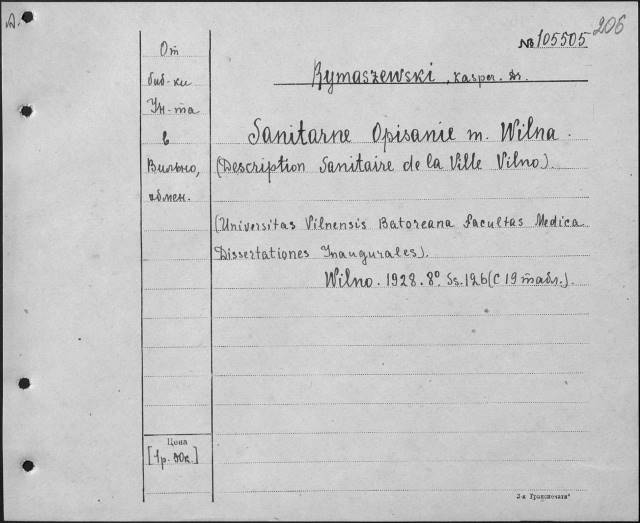 А.
206
№ 105505
От
биб-ки
Ун-та
в
Вильно,
обмен.
Rymaszewski, Kasper. Dr.
Sanitarne Opisanie m. Wilna.
(Description Sanitaire de la Ville Vilno).
(Universitas Vilnensis Batoreana Facultas Medica
Dissertationes Inaugurales).
Wilno. 1928. 8º. Ss. 126 (с 19 табл.).
Цена
[1р. 90к.]
2-я Транспечати"